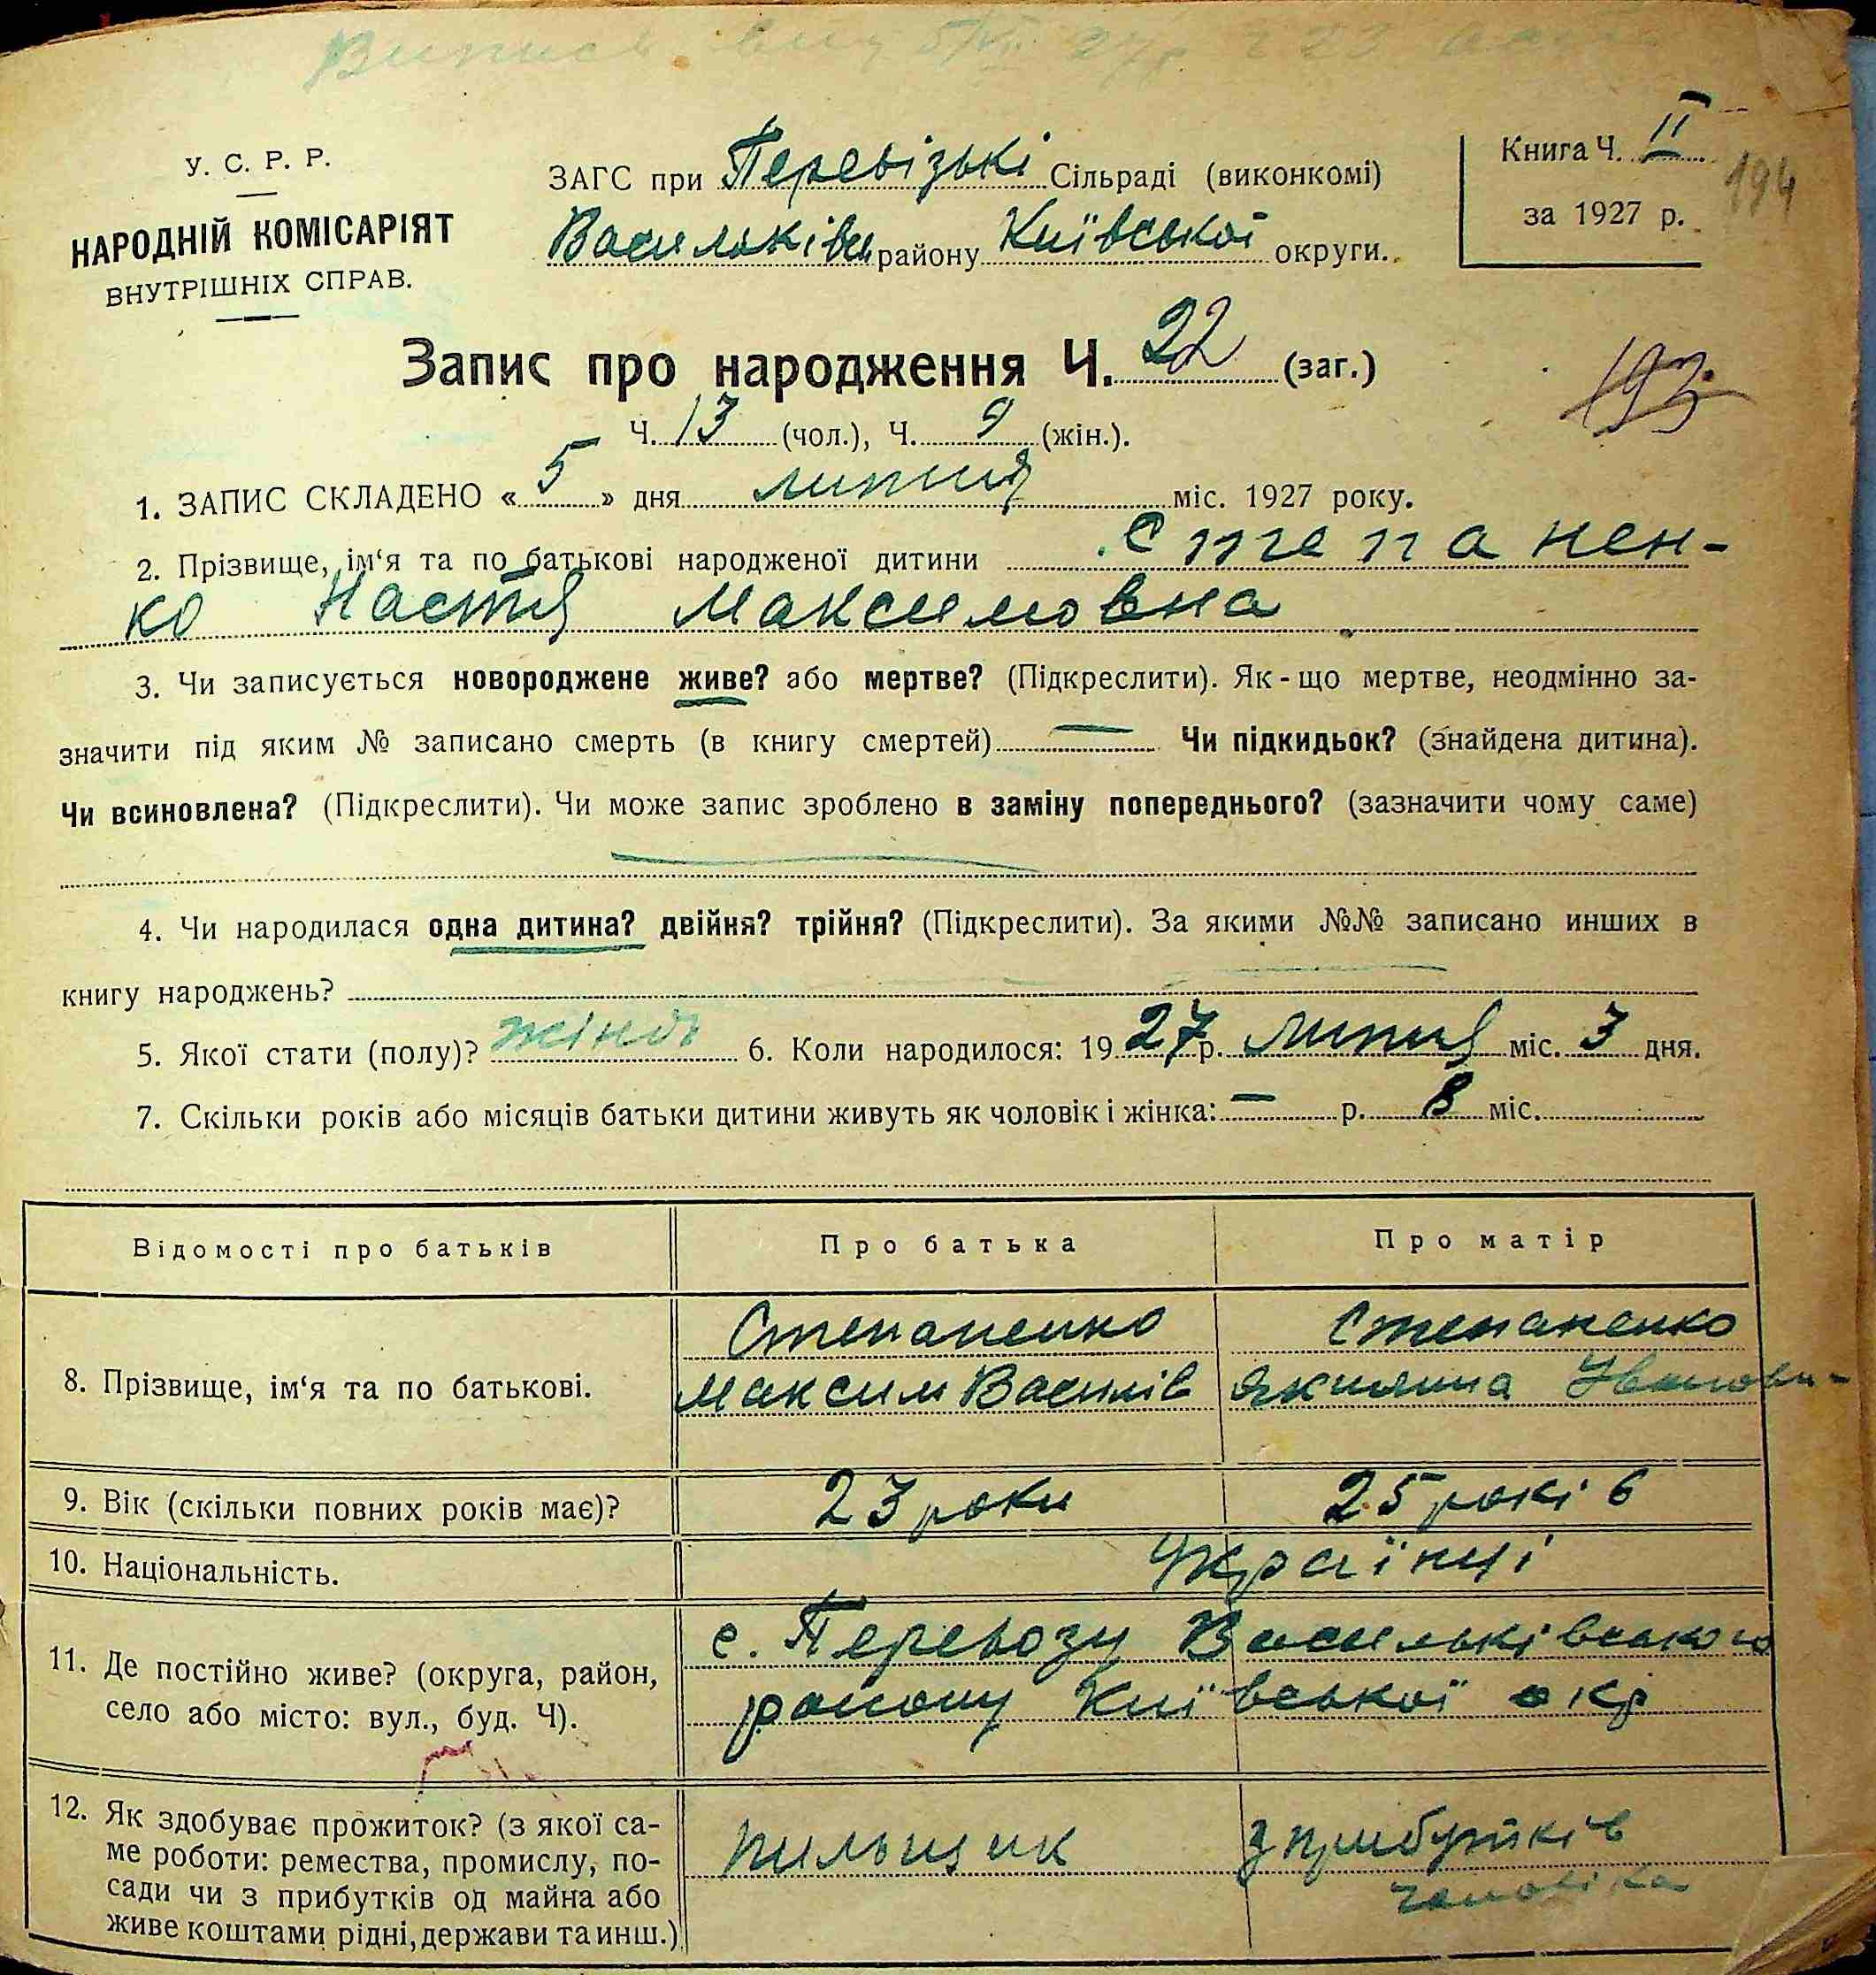 У. С. Р. Р.
НАРОДНІЙ КОМІСАРІЯТ
ВНУТРІШНІХ СПРАВ.
ЗАГС при Перевізькі Сільраді (виконкомі)
Васильківськ району Київської округи.
Книга Ч. II
за 1927 р.
194
Запис про народження Ч. 22 (заг.)
193
Ч. 13 (чол.), Ч. 9 (жін.).
1. ЗАПИС СКЛАДЕНО « 5 » дня липня міс. 1927 року.
2. Прізвище, ім‘я та по батькові народженої дитини Степанен-
ко Настя Максимовна
3. Чи записується новороджене живе? або мертве? (Підкреслити). Як-що мертве, неодмінно за-
значити під яким № записано смерть (в книгу смертей) — Чи підкидьок? (знайдена дитина).
Чи всиновлена? (Підкреслити). Чи може запис зроблено в заміну попереднього? (зазначити чому саме)
4. Чи народилася одна дитина? двійня? трійня? (Підкреслити). За якими №№ записано инших в
книгу народжень?
5. Якої стати (полу)? жіноч 6. Коли народилося: 1927 р. липня міс. 3 дня.
7. Скільки років або місяців батьки дитини живуть як чоловік і жінка: — р. 8 міс.
Відомості про батьків Про батька Про матір
8. Прізвище, ім‘я та по батькові.
Степаненко
Максим Василів
Степаненко
Якилина Іванови-
9. Вік (скільки повних років має)? 23 роки 25 років
10. Національність. Українці
11. Де постійно живе? (округа, район,
село або місто: вул., буд. Ч).
с. Перевозу Васильківського
району Київської окр
12. Як здобуває прожиток? (з якої са-
ме роботи: ремества, промислу, по-
сади чи з прибутків од майна або
живе коштами рідні, держави та инш.)
пильщик
з прибутків
чоловіка